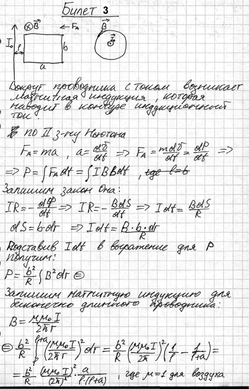 Билет 3
⊗B⃗
← F_A
B⃗
I₀
b
a
Вокруг проводника с током возникает
магнитная индукция, которая
наводит в контуре индукционный
ток
по II з-ну Ньютона
F_A = ma, a = dv⃗/dt ⇒ F_A = m dv⃗/dt = dP/dt ⇒
⇒ P = ∫F_A dt = ∫I B b dt, где l = b
Запишем закон Ома:
IR = -dФ/dt ⇒ IR = -BdS/dt ⇒ Idt = BdS/R
dS = b·dr ⇒ Idt = B·b·dr/R
Подставив Idt в выражение для P
получим:
P = b²/R ∫B²dr ⊜
Запишем магнитную индукцию для
бесконечно длинного проводника:
B = μμ₀I/2πr
⊜ b²/R ∫(μμ₀I/2πr)² dr = b²/R (μμ₀I/2π)² (1/r - 1/(r+a)) =
= b²/R (μμ₀I/2π)² a/r(r+a), где μ=1 для воздуха